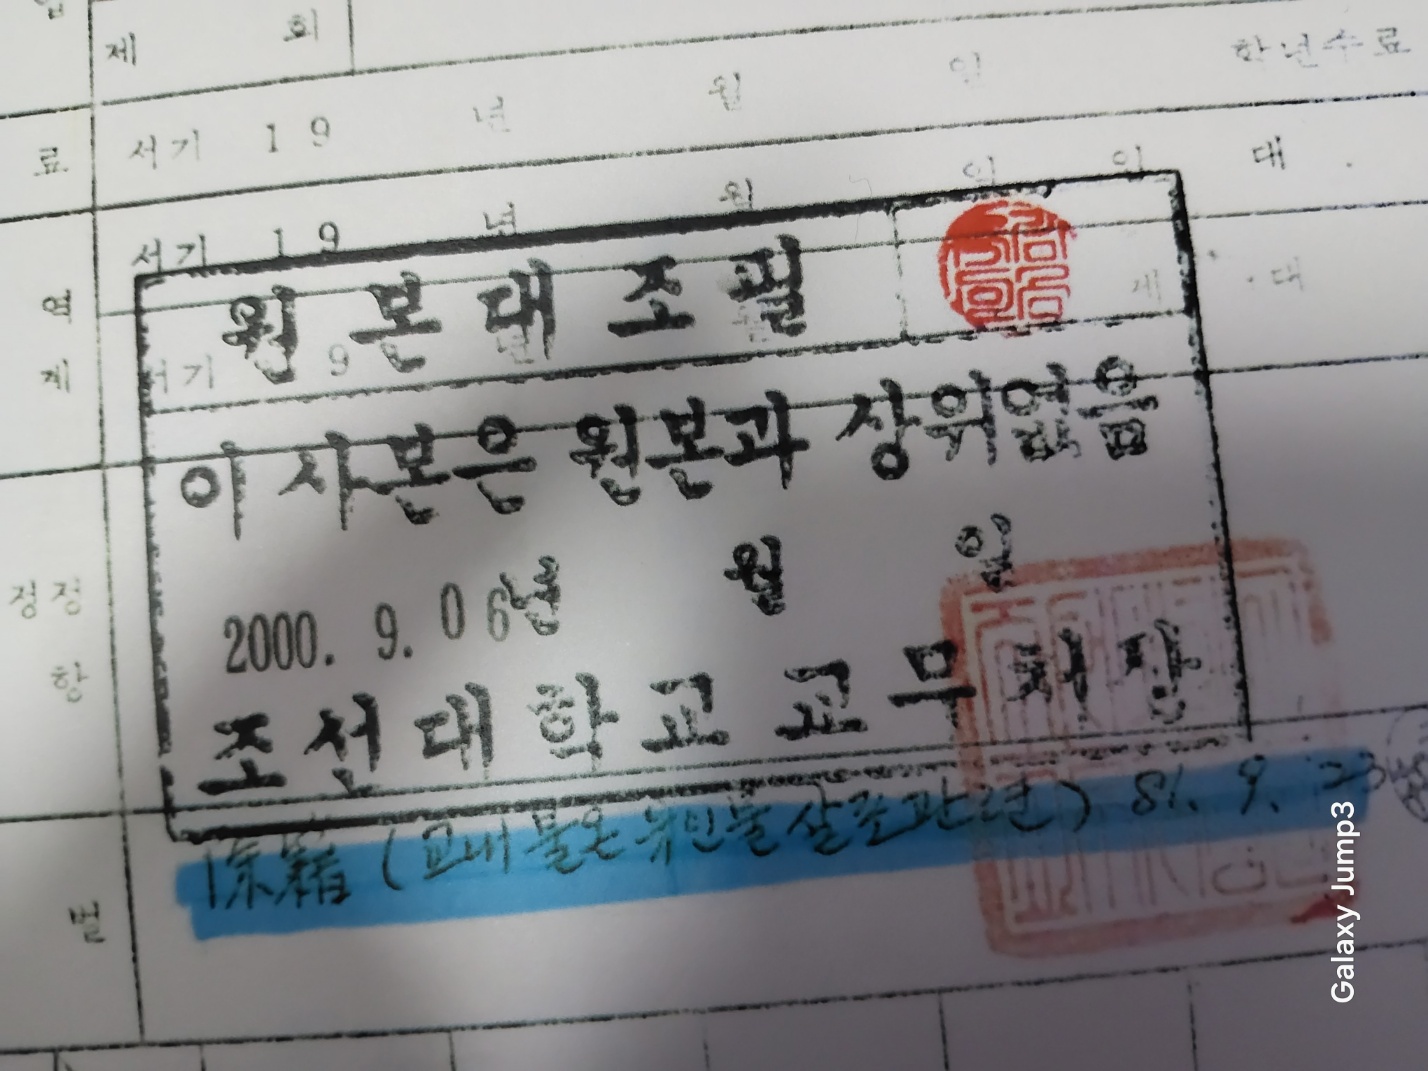 제 회
료 서기 19 년 월 일 학년수료
서기 19 년 월 일 인 대
원본대조필
요 서기 9 년 월 제 대
제
이 사본은 원본과 상위없음
2000. 9. 06 년 월 일
정정
항
조선대학교 교무처장
除籍 (교내 불온 유인물 살포관련) 81. 9. 23
Galaxy Jump3